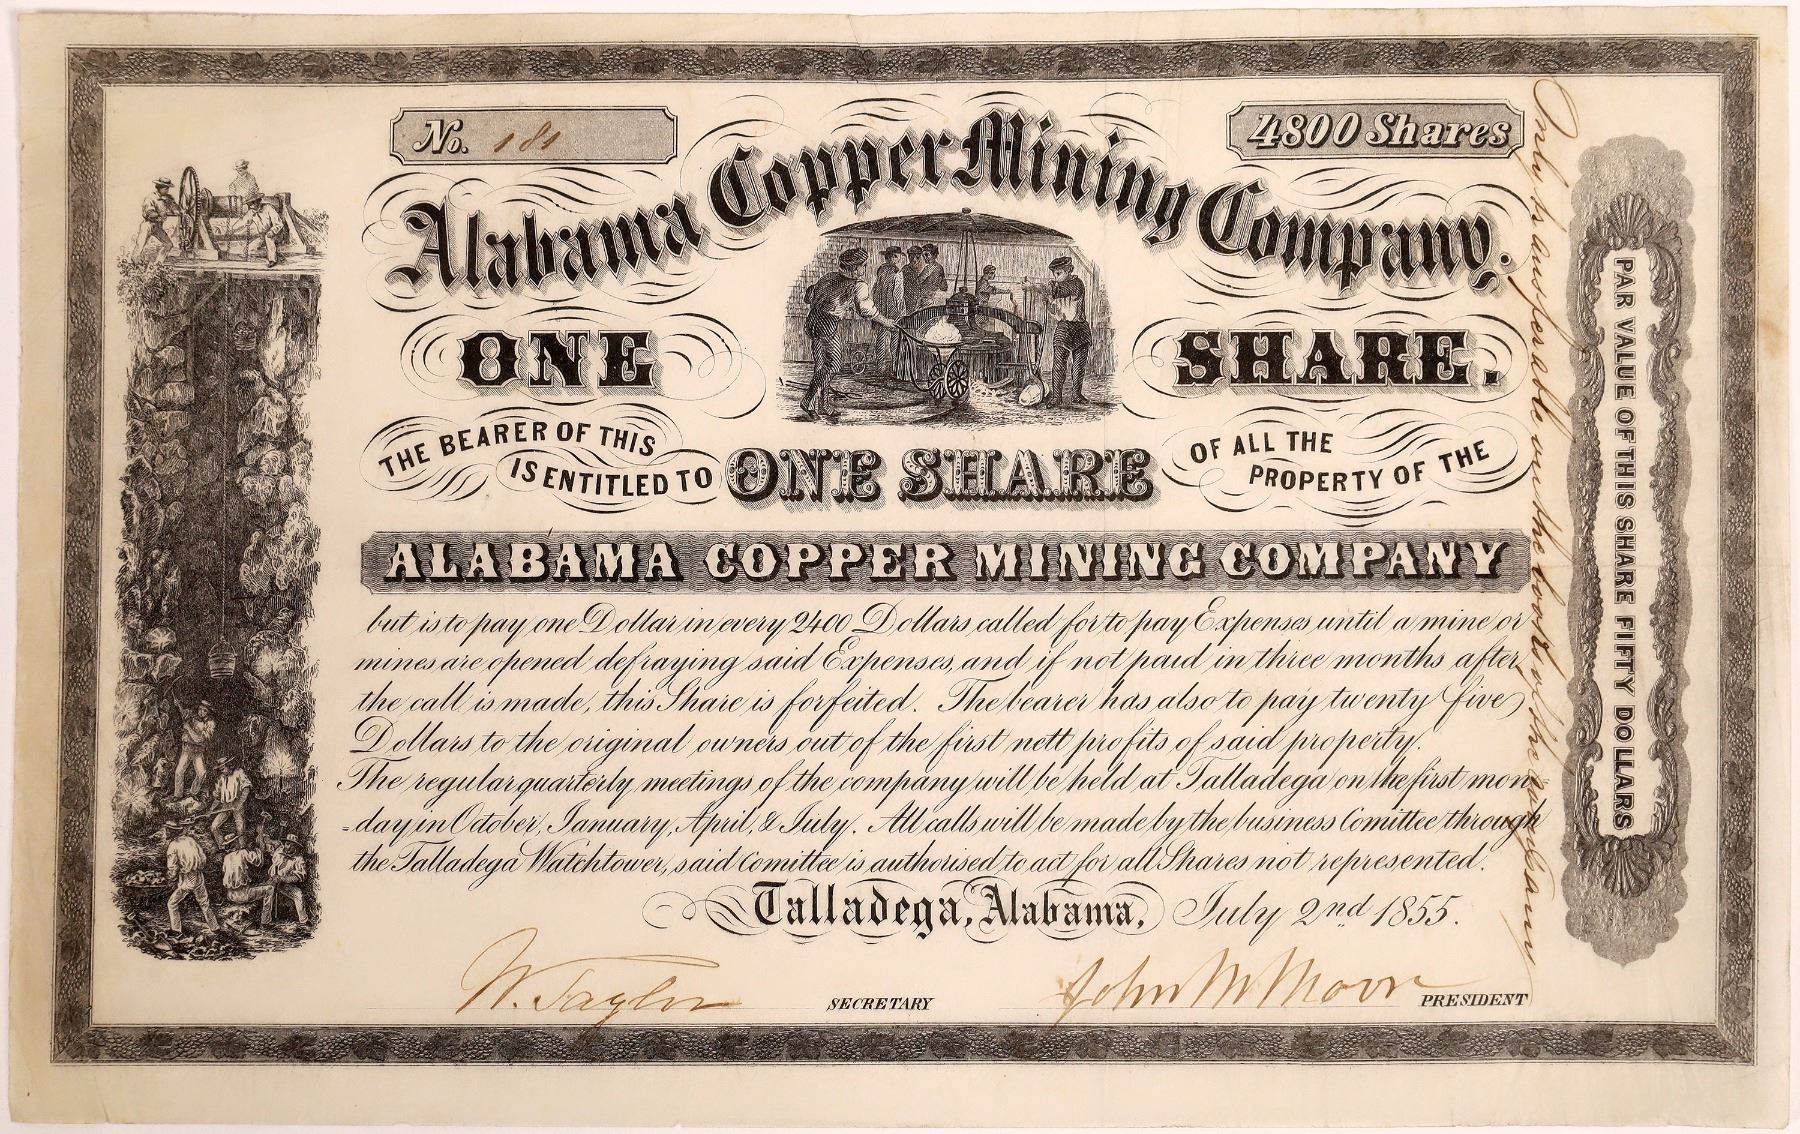 No. 181
4800 Shares
Alabama Copper Mining Company.
ONE SHARE.
THE BEARER OF THIS
IS ENTITLED TO ONE SHARE OF ALL THE
PROPERTY OF THE
ALABAMA COPPER MINING COMPANY
but is to pay one Dollar in every 2400 Dollars called for to pay Expenses until a mine or
mines are opened defraying said Expenses, and if not paid in three months after
the call is made, this Share is forfeited. The bearer has also to pay twenty five
Dollars to the original owners out of the first nett profits of said property.
The regular quarterly meetings of the company will be held at Talladega on the first mon
=day in October, January, April, & July. All calls will be made by the business Comittee through
the Talladega Watchtower, said Comittee is authorised to act for all Shares not represented.
Talladega, Alabama, July 2nd 1855.
W. Taylor SECRETARY John M Moore PRESIDENT
Only transferable on the book of the company
PAR VALUE OF THIS SHARE FIFTY DOLLARS